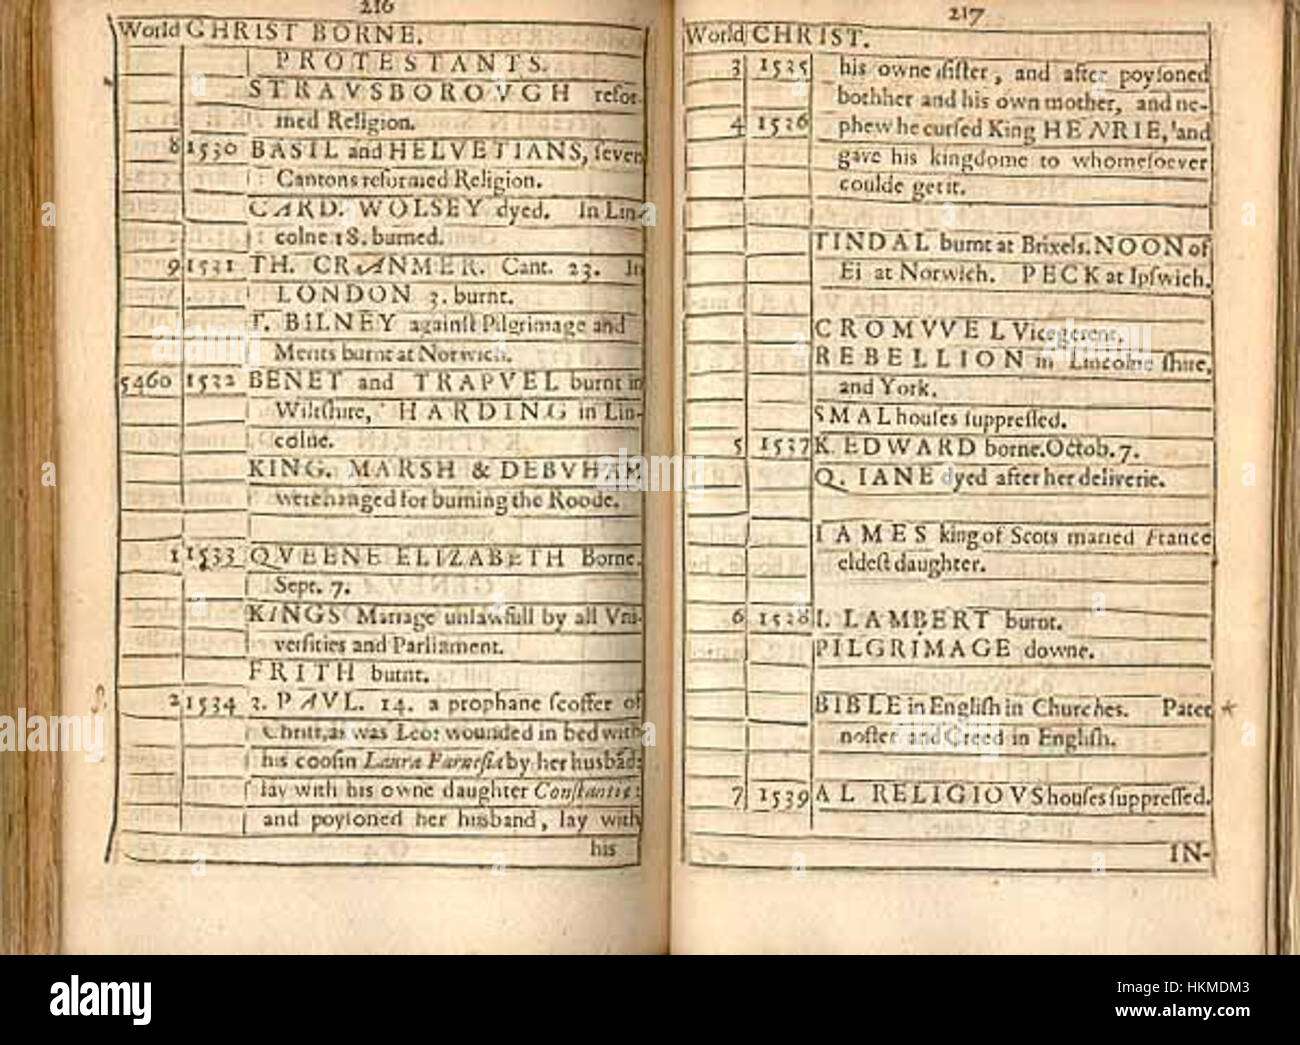 216
World CHRIST BORNE.
PROTESTANTS.
STRAVSBOROVGH refor-
med Religion.
8 1530 BASIL and HELVETIANS, ſeven
Cantons reformed Religion.
CARD. WOLSEY dyed. In Lin-
colne 18. burned.
9 1531 TH. CRANMER. Cant. 23. In
LONDON 3. burnt.
T. BILNEY againſt Pilgrimage and
Merits burnt at Norwich.
5460 1532 BENET and TRAPVEL burnt in
Wiltſhire, HARDING in Lin-
colne.
KING. MARSH & DEBVHAM
were hanged for burning the Roode.
1 1533 QVEENE ELIZABETH Borne.
Sept. 7.
KINGS Mariage unlawfull by all Vni-
verſities and Parliament.
FRITH burnt.
2 1534 3. PAVL. 14. a prophane ſcoffer of
Chriſt, as was Leo: wounded in bed with
his cooſin Laura Farneſia by her husbād:
lay with his owne daughter Conſtantie:
and poyſoned her husband, lay with
his
217
World CHRIST.
3 1535 his owne ſiſter, and after poyſoned
bothher and his own mother, and ne-
4 1536 phew he curſed King HENRIE, and
gave his kingdome to whomeſoever
coulde get it.
TINDAL burnt at Brixels. NOON of
Ei at Norwich. PECK at Ipſwich.
CROMVVEL Vicegerent.
REBELLION in Lincolne ſhire,
and York.
SMAL houſes ſuppreſſed.
5 1537 K. EDWARD borne. Octob. 7.
Q. IANE dyed after her deliverie.
IAMES king of Scots maried France
eldeſt daughter.
6 1538 I. LAMBERT burnt.
PILGRIMAGE downe.
BIBLE in Engliſh in Churches. Pater
noſter and Creed in Engliſh.
7 1539 AL RELIGIOVS houſes ſuppreſſed.
IN-
alamy
Image ID: HKMDM3
www.alamy.com